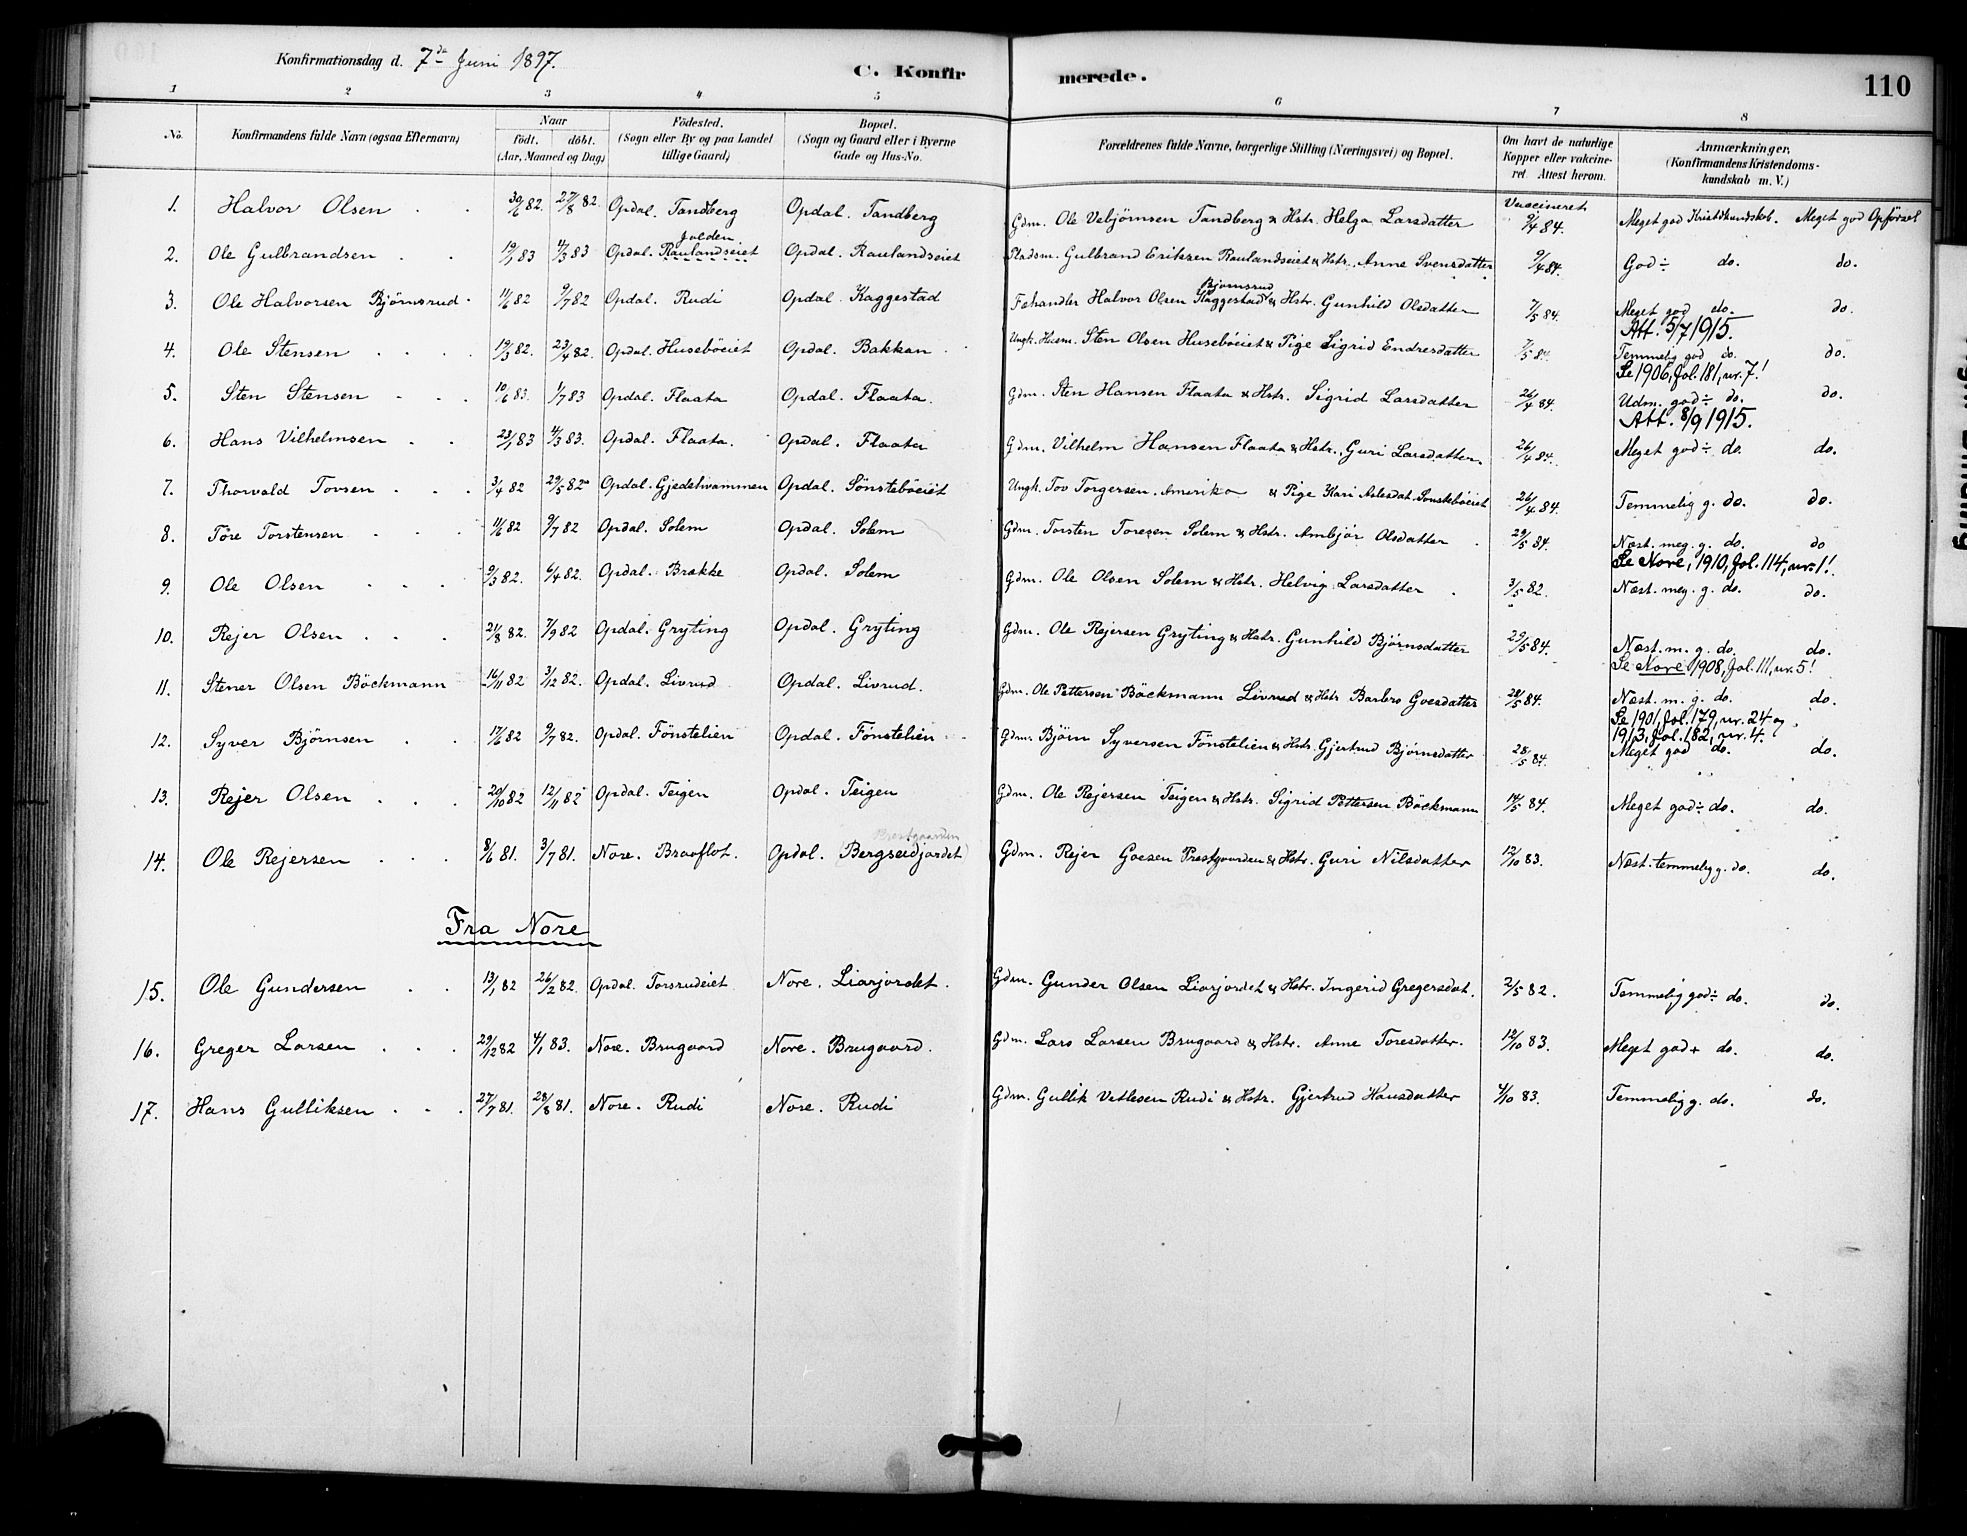 Konfirmationsdag d. 7de Juni 1897.
C. Konfirmerede.
110
1 2 3 4 5 6 7 8
No. Konfirmandens fulde Navn (ogsaa Efternavn) Naar födt. döbt. (Aar, Maaned og Dag) Födested. (Sogn eller By og paa Landet tillige Gaard) Bopæl. (Sogn og Gaard eller i Byerne Gade og Hus-No. Forældrenes fulde Navne, borgerlige Stilling (Næringsvei) og Bopæl. Om havt de naturlige Kopper eller vakcineret. Attest herom. Anmærkninger. (Konfirmandens Kristendomskundskab m. V.)
Vaccineret
1. Halvor Olsen 30/6 82. 27/8 82. Opdal. Tandberg Opdal. Tandberg Gdm. Ole Vebjörnsen Tandberg & Hstr. Helga Larsdatter 9/4 84. Meget god Kristdkundskab. Meget god Opförsel
Jolden
2. Ole Gulbrandsen 19/1 83 4/3 83 Opdal. Raulandseiet Opdal. Raulandseiet Pladsm. Gulbrand Eriksen Raulandseiet & Hstr. Anne Svensdatter 9/4 84. God ÷ do. do.
Bjornsrud
3. Ole Halvorsen Björnsrud 11/6 82 9/7 82 Opdal. Rudi Opdal. Kaggestad Fehandler Halvor Olsen Kaggestad & Hstr. Gunhild Olsdatter 7/5 84. Meget god do. do.
Att. 5/7 1915.
4. Ole Stensen 19/3 82. 23/4 82. Opdal. Huseböeiet Opdal. Bakkan Ungk. Husm. Sten Olsen Huseböeiet & Pige Sigrid Endresdatter 7/5 84. Temmelig god do. do.
Se 1906, fol. 181, nr. 7!
5. Sten Stensen 10/6 83. 1/7 83 Opdal. Flaata Opdal. Flaata. Gdm. Sten Hansen Flaata & Hstr. Sigrid Larsdatter 26/4 84. Udm. god ÷ do. do.
Att. 8/9 1915.
6. Hans Vilhelmsen 23/1 83 4/3 83. Opdal. Flaata. Opdal. Flaata Gdm. Vilhelm Hansen Flaata & Hstr. Guri Larsdatter. 26/4 84. Meget god ÷ do. do.
7. Thorvald Tovsen 3/4 82 29/5 82 Opdal. Gjedehvammen Opdal. Sönsteböeiet Ungk. Tov Torgersen. Amerika & Pige Kari Aslesdat. Sönsteböeiet 26/4 84. Temmelig g. do. do.
8. Töre Torstensen 11/6 82 9/7 82 Opdal. Solem Opdal. Solem Gdm. Torsten Toresen Solem & Hstr. Ambjör Olsdatter 29/5 84. Næst. meg. g. do. do
Se Nore, 1910, fol. 114, nr. 1!
9. Ole Olsen 9/3 82. 6/4 82. Opdal. Brække Opdal. Solem Gdm. Ole Olsen Solem & Hstr. Helvig Larsdatter 3/5 82. Næst. meg. g. do. do.
10. Rejer Olsen 21/8 82. 7/9 82 Opdal. Gryting Opdal. Gryting Gdm. Ole Rejersen Gryting & Hstr. Gunhild Björnsdatter 29/5 84. Næst. m. g. do. do.
Se Nore 1908, fol. 111, nr. 5!
11. Stener Olsen Böckmann 16/11 82 3/12 82. Opdal. Livrud Opdal. Livrud. Gdm. Ole Pettersen Böckmann Livrud & Hstr Barbro Goesdatter 28/5 84. Næst m. g. do. do.
Se 1901, fol. 179, nr. 24 og
1913, fol. 182, nr. 4.
12. Syver Björnsen 17/6 82 9/7 82. Opdal. Fönstelien Opdal. Fönstelien Gdm. Björn Syversen Fönstelien & Hstr. Gjertrud Björnsdatter 28/5 84. Meget god do. do.
13. Rejer Olsen 20/10 82 12/11 82 Opdal. Teigen Opdal. Teigen Gdm. Ole Rejersen Teigen & Hstr. Sigrid Pettersen Böckmann 14/5 84. Meget god ÷ do. do.
Prestgaarden
14. Ole Rejersen 8/6 81. 3/7 81. Nore. Braaflot. Opdal. Bergseidjordet Gdm. Rejer Goesen Prestgaarden & Hstr. Guri Nilsdatter 12/10 83. Næst. temmelig g. do. do.
Fra Nore
15. Ole Gundersen 13/1 82 26/2 82. Opdal. Torsrudeiet Nore. Liarjordet. Gdm. Gunder Olsen Liarjordet & Hstr. Ingerid Gregersdat. 2/5 82. Temmelig god ÷ do. do.
16. Greger Larsen 29/12 82 4/1 83. Nore. Brugaard Nore. Brugaard. Gdm. Lars Larsen Brugaard & Hstr. Anne Toresdatter. 12/10 83. Meget god + do. do.
17. Hans Gulliksen 27/7 81. 28/8 81. Nore. Rudi Nore. Rudi Gdm. Gullik Vetlesen Rudi & Hstr. Gjertrud Hansdatter 4/10 83. Temmelig g. do. do.